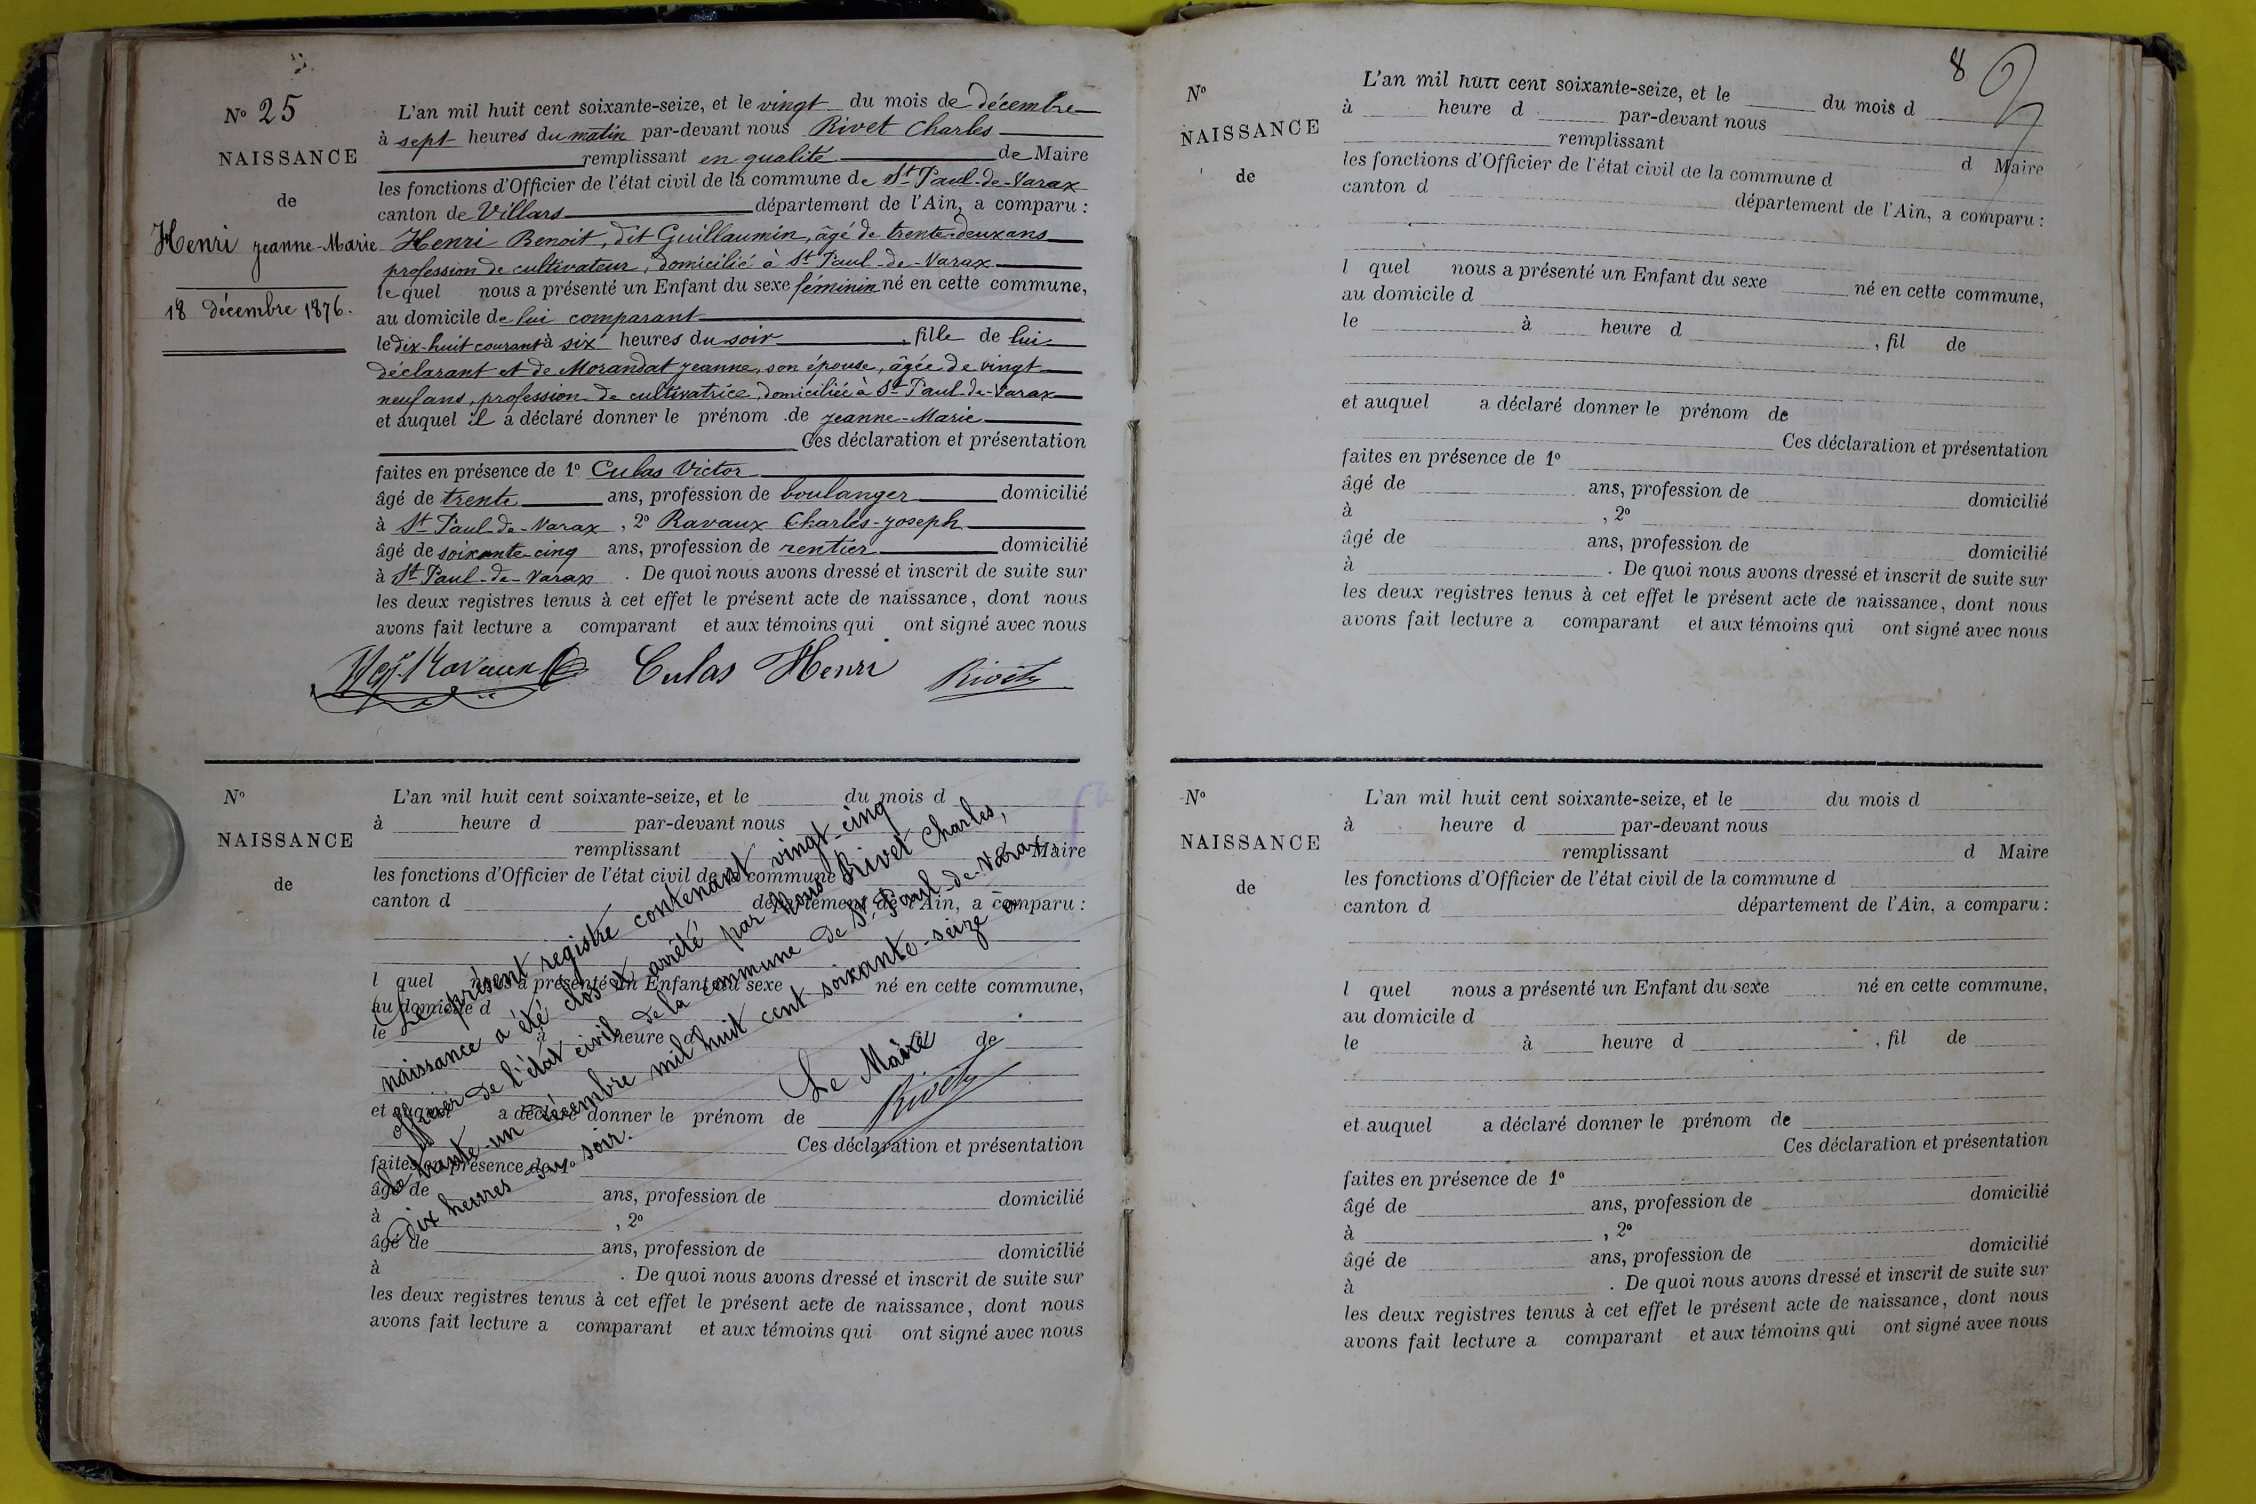 N° 25
NAISSANCE
de
Henri Jeanne-Marie
18 décembre 1876.
L'an mil huit cent soixante-seize, et le vingt du mois de décembre
à sept heures du matin par-devant nous Rivet Charles
remplissant en qualité de Maire
les fonctions d'Officier de l'état civil de la commune de St Paul-de-Varax
canton de Villars département de l'Ain, a comparu :
Henri Benoit, dit Guillaumin, âgé de trente-deux ans
profession de cultivateur, domicilié à St Paul-de-Varax
lequel nous a présenté un Enfant du sexe féminin né en cette commune,
au domicile de lui comparant
le dix-huit courant à six heures du soir, fille de lui
déclarant et de Morandat Jeanne, son épouse, âgée de vingt
neuf ans, profession de cultivatrice, domiciliée à St Paul-de-Varax
et auquel il a déclaré donner le prénom de Jeanne-Marie
Ces déclaration et présentation
faites en présence de 1° Culas Victor
âgé de trente ans, profession de boulanger domicilié
à St Paul-de-Varax, 2° Ravaux Charles-Joseph
âgé de soixante-cinq ans, profession de rentier domicilié
à St Paul-de-Varax. De quoi nous avons dressé et inscrit de suite sur
les deux registres tenus à cet effet le présent acte de naissance, dont nous
avons fait lecture a comparant et aux témoins qui ont signé avec nous
Ravaux Culas Henri Rivet
N°
NAISSANCE
de
L'an mil huit cent soixante-seize, et le du mois d
à heure d par-devant nous
remplissant d Maire
les fonctions d'Officier de l'état civil de la commune d
canton d département de l'Ain, a comparu :
l quel nous a présenté un Enfant du sexe né en cette commune,
au domicile d
le à heure d , fil de
et auquel a déclaré donner le prénom de
Ces déclaration et présentation
faites en présence de 1°
âgé de ans, profession de domicilié
à , 2°
âgé de ans, profession de domicilié
à . De quoi nous avons dressé et inscrit de suite sur
les deux registres tenus à cet effet le présent acte de naissance, dont nous
avons fait lecture a comparant et aux témoins qui ont signé avec nous
Le présent registre contenant vingt-cinq
naissance a été clos et arrêté par nous Rivet Charles,
officier de l'état civil de la commune de St Paul-de-Varax,
le trente-un décembre mil huit cent soixante-seize à
dix heures du soir.
Le Maire
Rivet
8
N°
NAISSANCE
de
L'an mil huit cent soixante-seize, et le du mois d
à heure d par-devant nous
remplissant d Maire
les fonctions d'Officier de l'état civil de la commune d
canton d département de l'Ain, a comparu :
l quel nous a présenté un Enfant du sexe né en cette commune,
au domicile d
le à heure d , fil de
et auquel a déclaré donner le prénom de
Ces déclaration et présentation
faites en présence de 1°
âgé de ans, profession de domicilié
à , 2°
âgé de ans, profession de domicilié
à . De quoi nous avons dressé et inscrit de suite sur
les deux registres tenus à cet effet le présent acte de naissance, dont nous
avons fait lecture a comparant et aux témoins qui ont signé avec nous
N°
NAISSANCE
de
L'an mil huit cent soixante-seize, et le du mois d
à heure d par-devant nous
remplissant d Maire
les fonctions d'Officier de l'état civil de la commune d
canton d département de l'Ain, a comparu :
l quel nous a présenté un Enfant du sexe né en cette commune,
au domicile d
le à heure d , fil de
et auquel a déclaré donner le prénom de
Ces déclaration et présentation
faites en présence de 1°
âgé de ans, profession de domicilié
à , 2°
âgé de ans, profession de domicilié
à . De quoi nous avons dressé et inscrit de suite sur
les deux registres tenus à cet effet le présent acte de naissance, dont nous
avons fait lecture a comparant et aux témoins qui ont signé avec nous